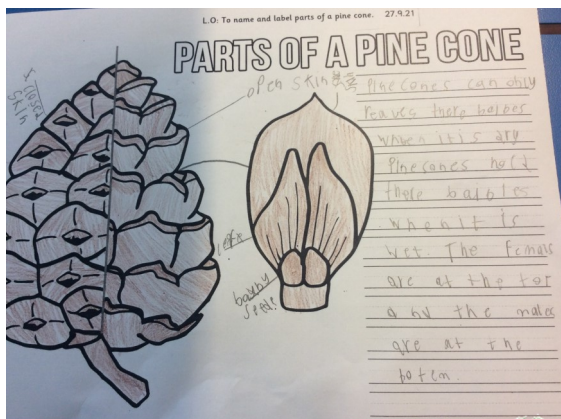 L.O: To name and label parts of a pine cone. 27.9.21
PARTS OF A PINE CONE
closed
skin
open skin
baby
seeds
Pinecones can only
when it is dry
Pinecones hold
there
when it is
wet. The females
are at the top
and the males
are at the
botem.